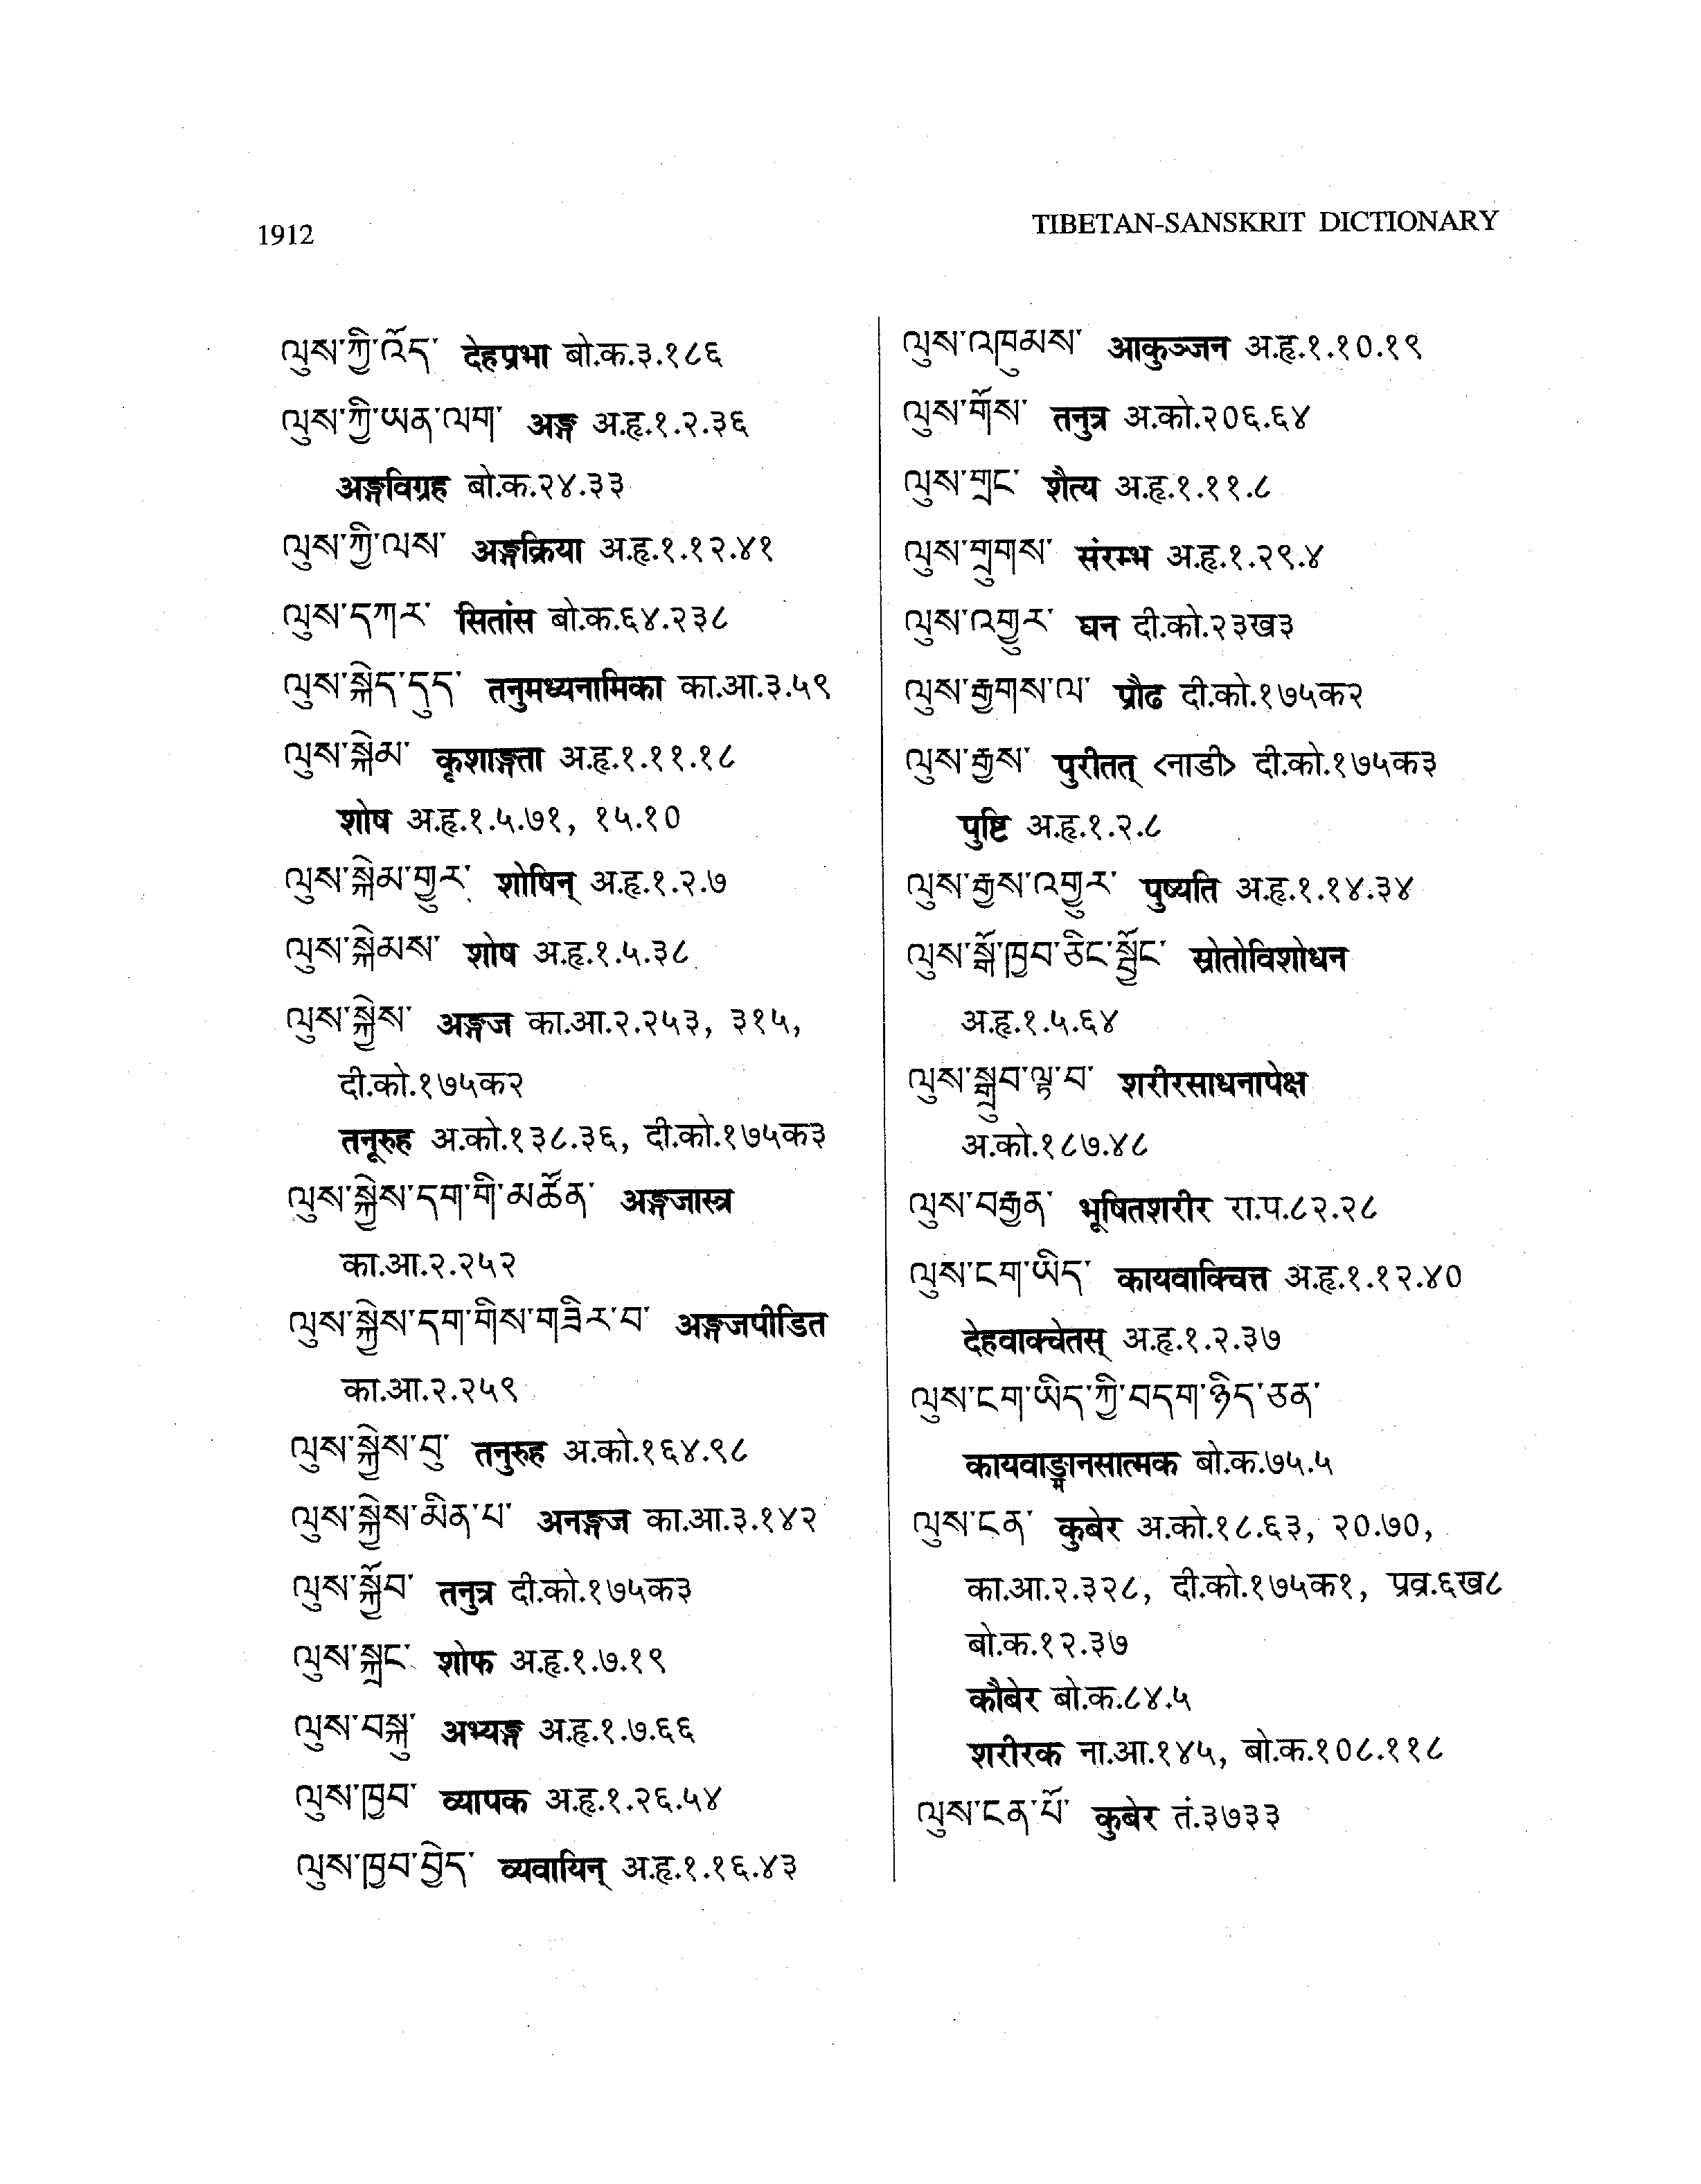 1912
TIBETAN-SANSKRIT DICTIONARY
ལུས་ཀྱི་འོད་ देहप्रभा बो.क.३.१८६
ལུས་ཀྱི་ཡན་ལག་ अङ्ग अ.हृ.१.२.३६
अङ्गविग्रह बो.क.२४.३३
ལུས་ཀྱི་ལས་ अङ्गक्रिया अ.हृ.१.१२.४१
ལུས་དཀར་ सितांस बो.क.६४.२३८
ལུས་སྐེད་དུད་ तनुमध्यनामिका का.आ.३.५९
ལུས་སྐེམ་ कृशाङ्गता अ.हृ.१.११.१८
शोष अ.हृ.१.५.७१, १५.१०
ལུས་སྐེམ་གྱུར་ शोषिन् अ.हृ.१.२.७
ལུས་སྐེམས་ शोष अ.हृ.१.५.३८
ལུས་སྐྱེས་ अङ्गज का.आ.२.२५३, ३१५,
दी.को.१७५क२
तनूरुह अ.को.१३८.३६, दी.को.१७५क३
ལུས་སྐྱེས་དག་གི་མཚོན་ अङ्गजास्त्र
का.आ.२.२५२
ལུས་སྐྱེས་དག་གིས་གཟིར་བ་ अङ्गजपीडित
का.आ.२.२५९
ལུས་སྐྱེས་བུ་ तनुरुह अ.को.१६४.९८
ལུས་སྐྱེས་མིན་པ་ अनङ्गज का.आ.३.१४२
ལུས་སྐྱོབ་ तनुत्र दी.को.१७५क३
ལུས་སྐྲང་ शोफ अ.हृ.१.७.१९
ལུས་བསྐུ་ अभ्यङ्ग अ.हृ.१.७.६६
ལུས་ཁྱབ་ व्यापक अ.हृ.१.२६.५४
ལུས་ཁྱབ་བྱེད་ व्यवायिन् अ.हृ.१.१६.४३
ལུས་འཁུམས་ आकुञ्जन अ.हृ.१.१०.१९
ལུས་གོས་ तनुत्र अ.को.२०६.६४
ལུས་གྲང་ शैत्य अ.हृ.१.११.८
ལུས་གྲུགས་ संरम्भ अ.हृ.१.२९.४
ལུས་འགྱུར་ घन दी.को.२३ख३
ལུས་རྒྱགས་ལ་ प्रौढ दी.को.१७५क२
ལུས་རྒྱས་ पुरीतत् <नाडी> दी.को.१७५क३
पुष्टि अ.हृ.१.२.८
ལུས་རྒྱས་འགྱུར་ पुष्यति अ.हृ.१.१४.३४
ལུས་སྒོ་ཁྱབ་ཅིང་སྦྱོང་ स्रोतोविशोधन
अ.हृ.१.५.६४
ལུས་སྒྲུབ་ལྟ་བ་ शरीरसाधनापेक्ष
अ.को.१८७.४८
ལུས་བརྒྱན་ भूषितशरीर रा.प.८२.२८
ལུས་ངག་ཡིད་ कायवाक्चित्त अ.हृ.१.१२.४०
देहवाक्चेतस् अ.हृ.१.२.३७
ལུས་ངག་ཡིད་ཀྱི་བདག་ཉིད་ཅན་
कायवाङ्मानसात्मक बो.क.७५.५
ལུས་ངན་ कुबेर अ.को.१८.६३, २०.७०,
का.आ.२.३२८, दी.को.१७५क१, प्रव्र.६ख८
बो.क.१२.३७
कौबेर बो.क.८४.५
शरीरक ना.आ.१४५, बो.क.१०८.११८
ལུས་ངན་པོ་ कुबेर तं.३७३३